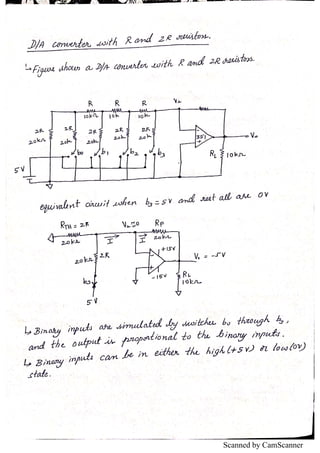 D/A converter with R and 2R resistors.
↳ Figure shows a D/A converter with R and 2R resistors.
R R R V2
10kΩ 10k 10k
2R 2R 2R 2R 2R
20k 20k 20k 20k 20k
b0 b1 b2 b3
351 Vo
RL 10kΩ
5V
equivalent circuit when b3 = 5V and rest all are 0V
RTH = 2R V2=0 RF
20kΩ 20kΩ
I I +15V
20kΩ 2R V0 = -5V
-15V RL
b3 10kΩ
5V
↳ Binary inputs are simulated by switches b0 through b3,
and the output is proportional to the binary inputs.
↳ Binary inputs can be in either the high (+5V) or low (0V)
state.
Scanned by CamScanner